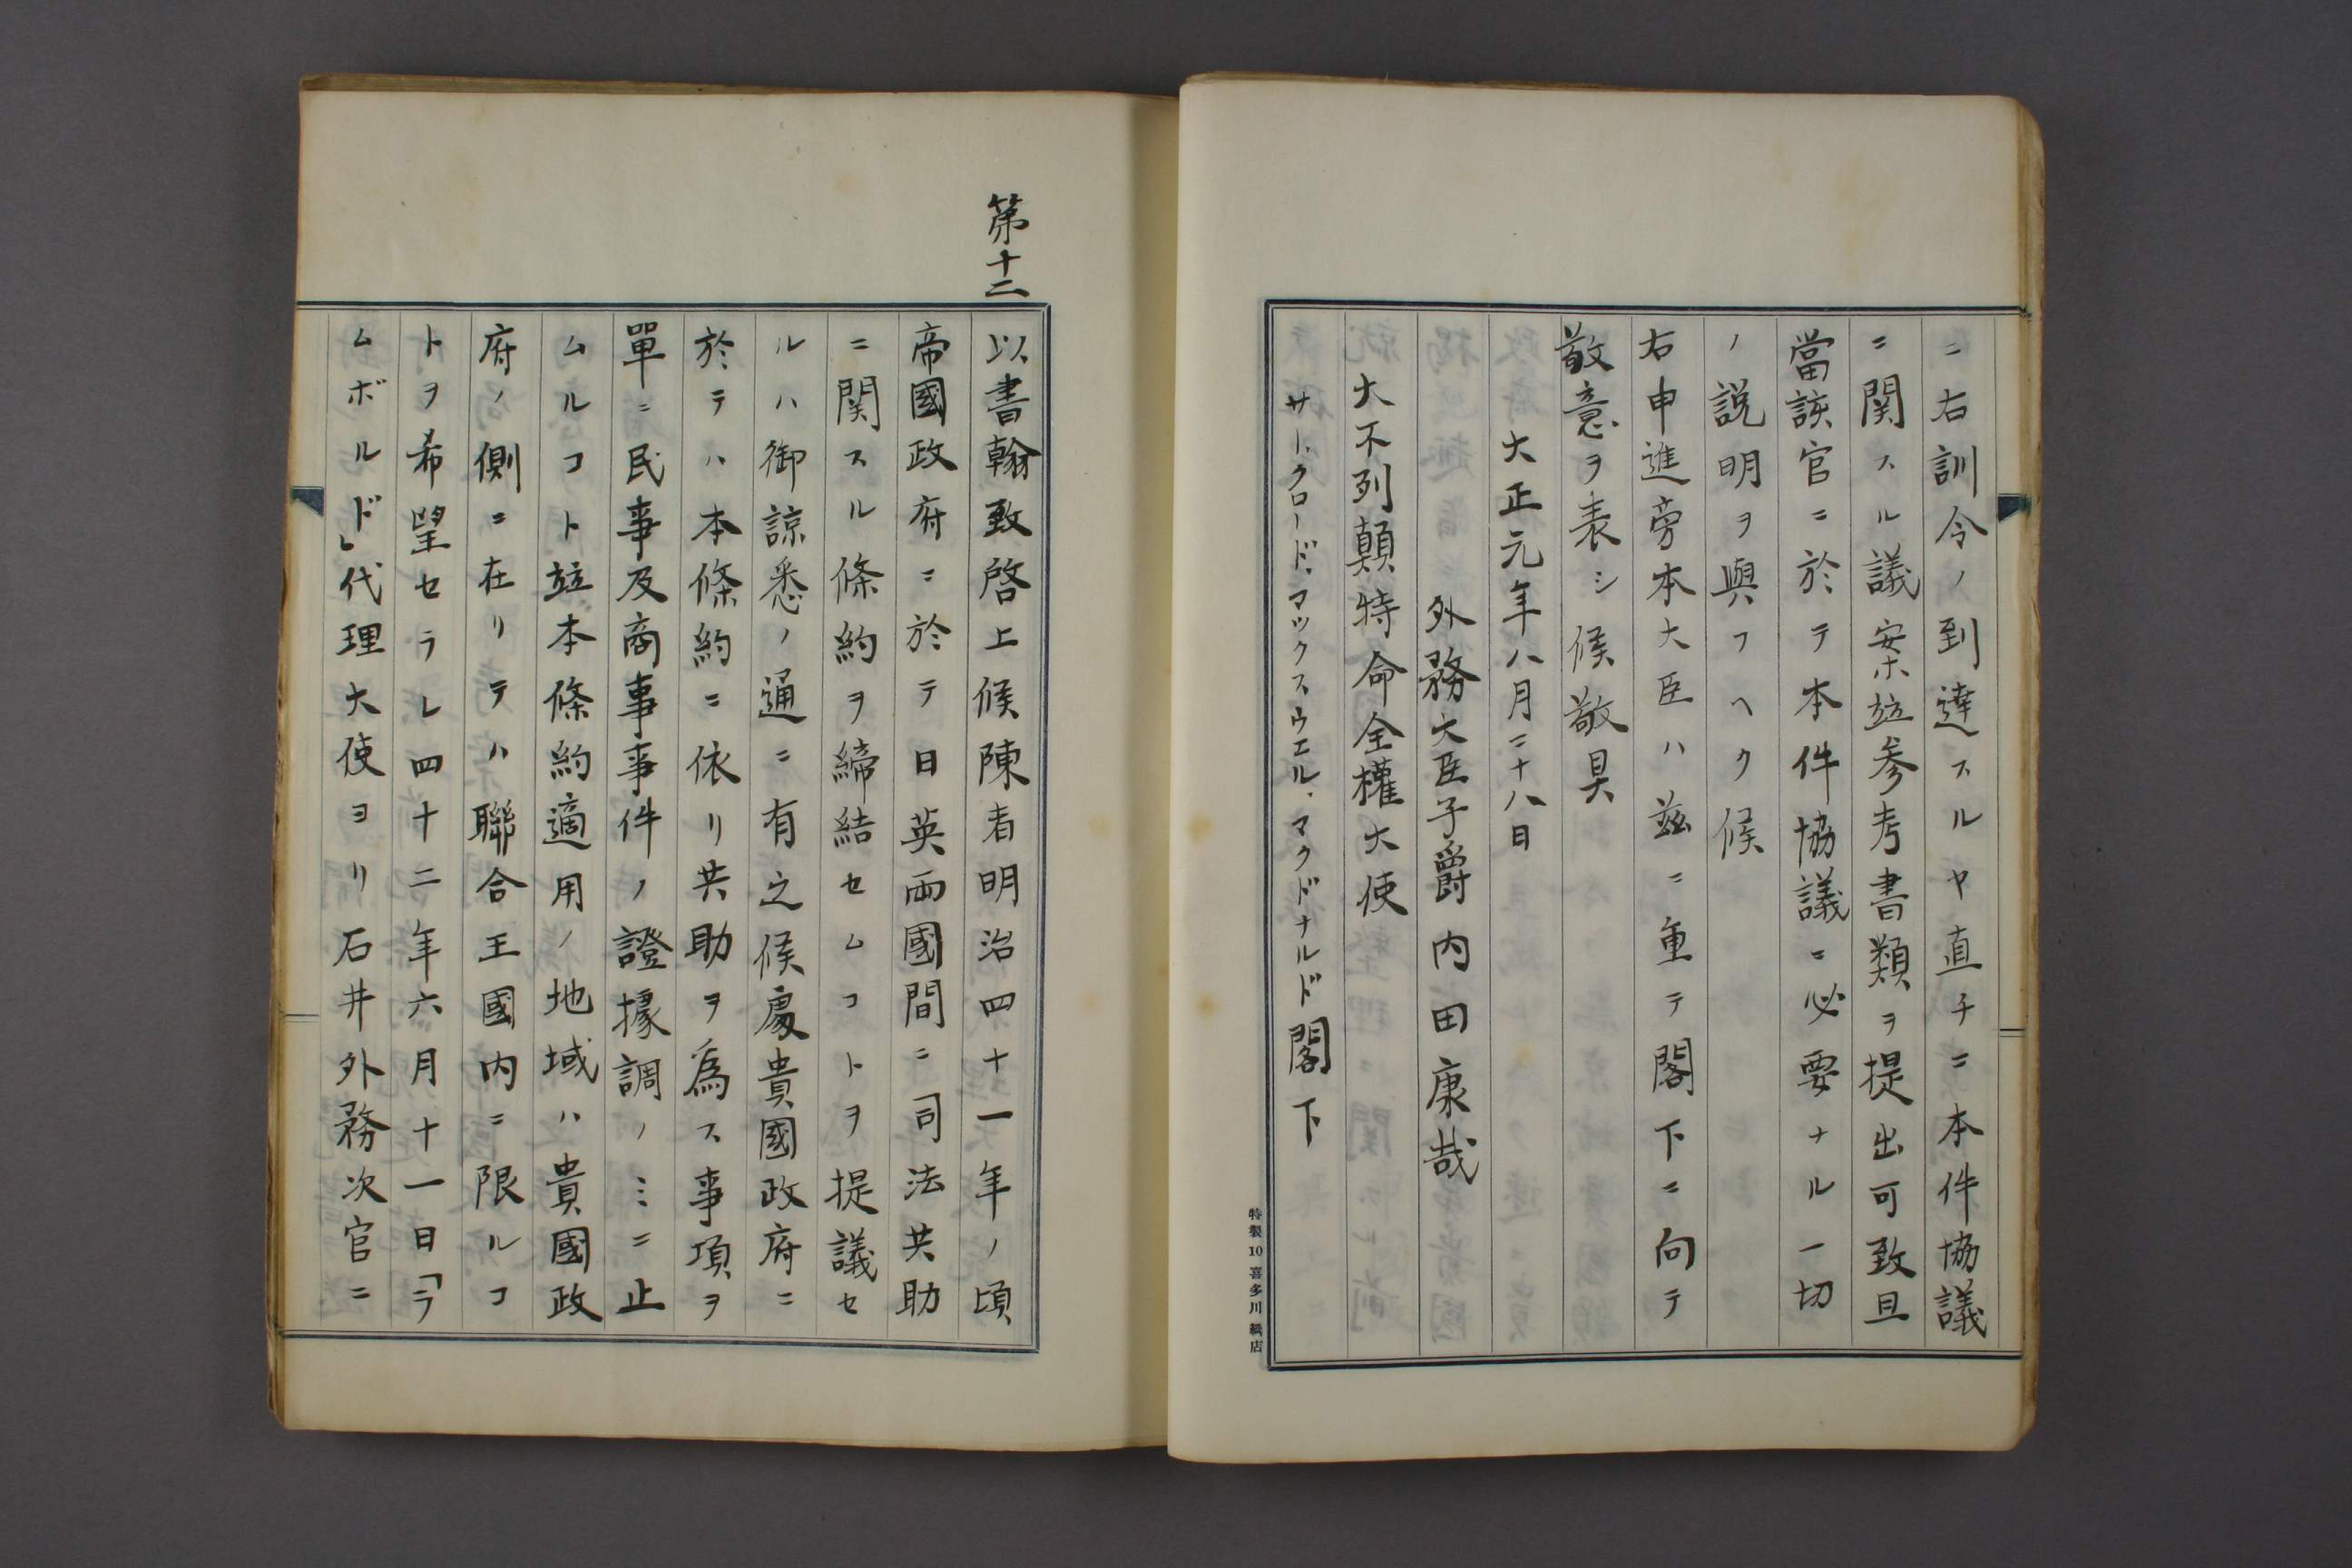 ニ右訓令ノ到達スルヤ直チニ本件協議
ニ関スル議案竝参考書類ヲ提出可致且
當該官ニ於テ本件協議ニ必要ナル一切
ノ説明ヲ與フヘク候
右申進旁本大臣ハ茲ニ重テ閣下ニ向テ
敬意ヲ表シ候敬具
大正元年八月二十八日
外務大臣子爵内田康哉
大不列顛特命全權大使
サー、クロード、マックスウエル、マクドナルド閣下
特製10喜多川紙店
第十二
以書翰致啓上候陳者明治四十一年ノ頃
帝國政府ニ於テ日英両國間ニ司法共助
ニ関スル條約ヲ締結セムコトヲ提議セ
ルハ御諒悉ノ通ニ有之候處貴國政府ニ
於テハ本條約ニ依リ共助ヲ為ス事項ヲ
單ニ民事及商事事件ノ證據調ノミニ止
ムルコト竝本條約適用ノ地域ハ貴國政
府ノ側ニ在リテハ聯合王國内ニ限ルコ
トヲ希望セラレ四十二年六月十一日「ラ
ムボルド」代理大使ヨリ石井外務次官ニ